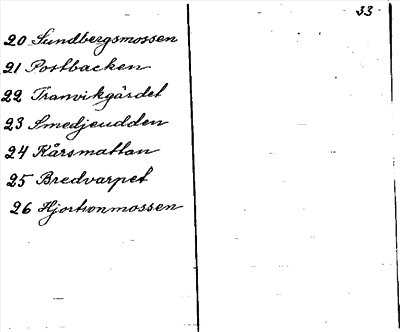 33
20 Sundbergsmossen
21 Postbacken
22 Tranvikgärdet
23 Smedjeudden
24 Kårsmattan
25 Bredvarpet
26 Hjortronmossen